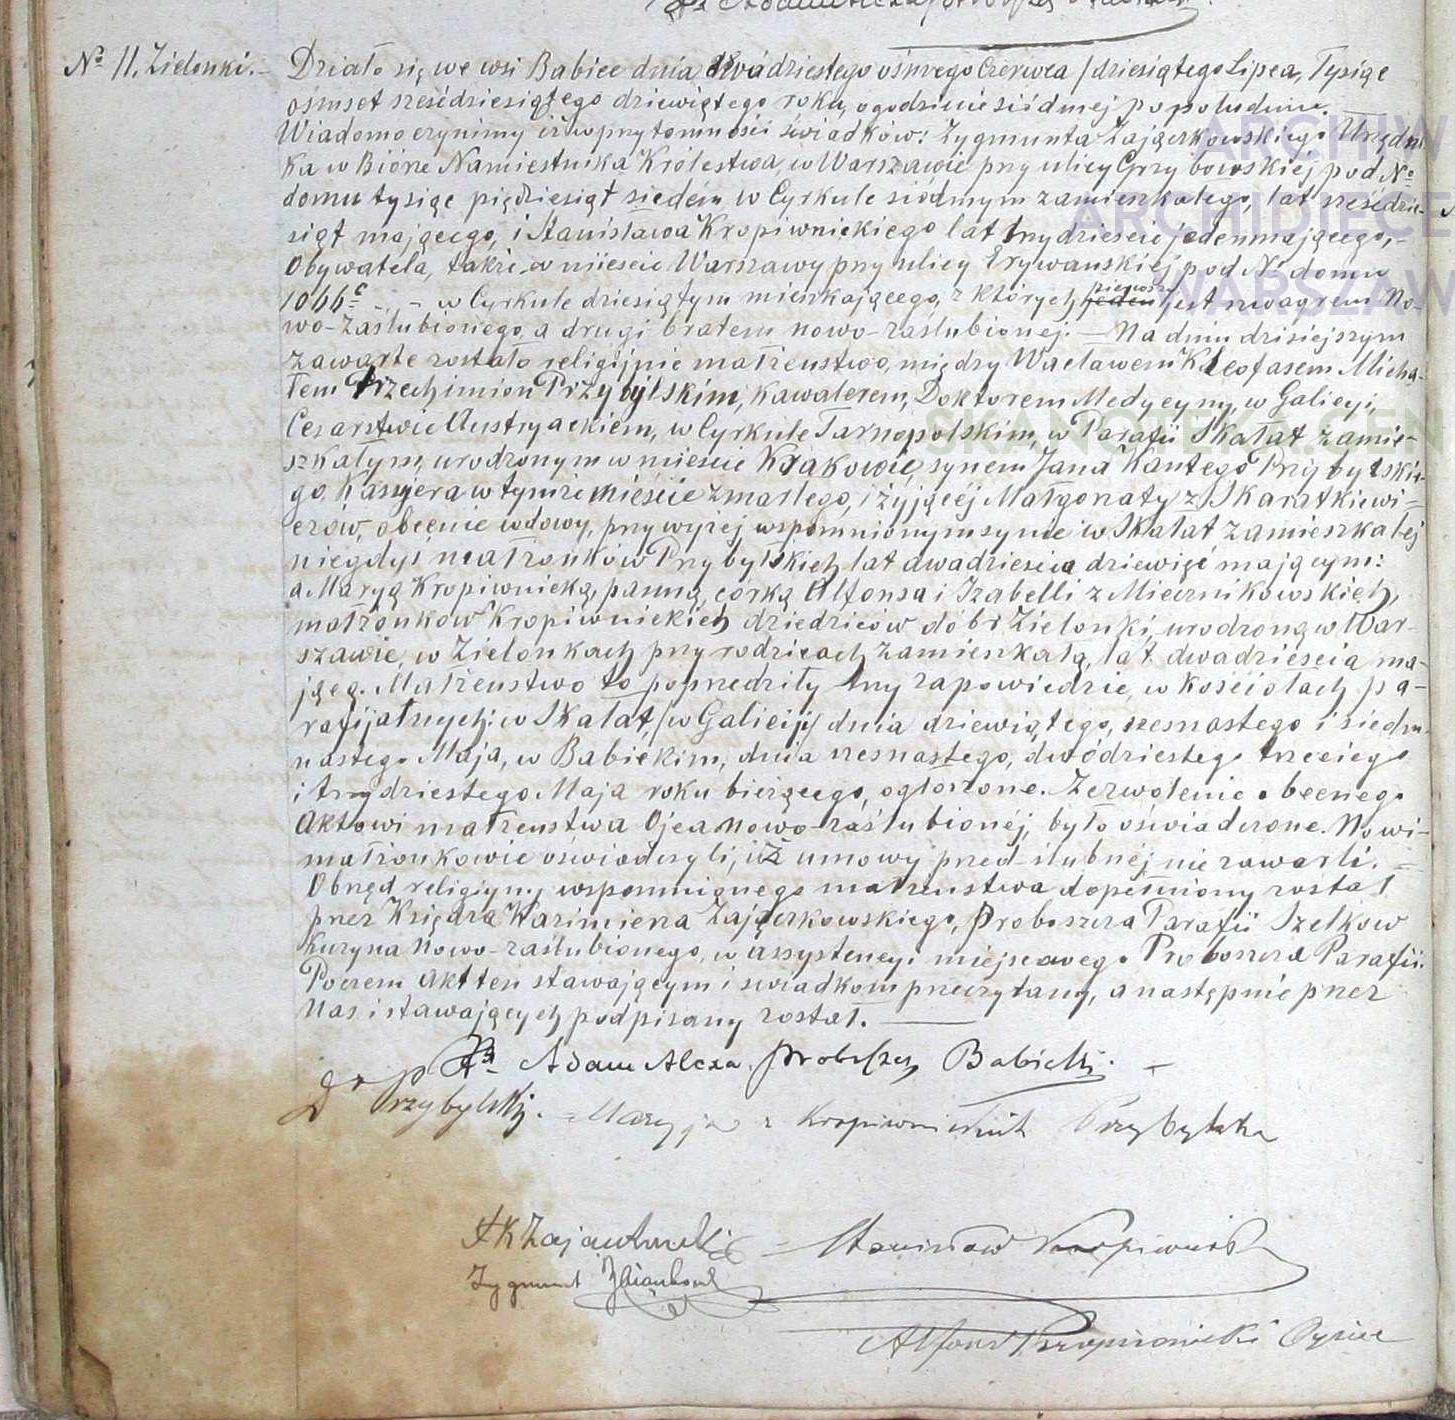 No 11. Zielonki.— Działo się we wsi Babice dnia dwódziestego ósmego Czerwca /dziesiątego Lipca, Tysiąc
ośmset sześćdziesiątego dziewiątego roku, o godzinie siódmej po południu.
Wiadomo czynimy iż w przytomności świadków: Zygmunta Zajączkowskiego Urzędni-
ka w Biórze Namiestnika Królestwa, w Warszawie przy ulicy Grzybowskiej pod No
domu tysiąc pięćdziesiąt siedem w Cyrkule siódmym zamieszkałego, lat sześćdzie-
siąt mającego, i Stanisława Kropiwnickiego lat trzydzieście jeden mającego,-
Obywatela, także w mieście Warszawy przy ulicy Erywańskiej pod No domu
1066c — w Cyrkule dziesiątym mieszkającego, z których jeden pierwszy jest szwagrem No-
wo-zaślubionego, a drugi bratem nowo-zaślubionej.— Na dniu dzisiejszym
zawarte zostało religijnie małżeństwo, między Wacławem Kleofasem Micha-
łem Trzech imion Przybylskim, kawalerem, Doktorem Medycyny, w Galicyi,
Cesarstwie Austryackiem, w Cyrkule Tarnopolskim, w Parafii Skałat zamie-
szkałym, urodzonym w mieście Krakowie, synem Jana Kantego Przybylskie-
go Kassyera w tymże mieście zmarłego, i żyjącéj Małgorzaty z Skarżtkiewi-
czów, obecnie wdowy, przy wyżej wspomnionym synie w Skałat zamieszkałej
niegdyś małżonków Przybylskich, lat dwadzieścia dziewięć mającym:
a Maryą Kropiwnicką, panną, córką Alfonsa i Izabelli z Miecznikowskich,
małżonków Kropiwnickich dziedziców dóbr Zielonki, urodzoną w War-
szawie, w Zielonkach przy rodzicach zamieszkałą, lat dwadzieścia ma-
jącą. Małżeństwo to poprzedziły trzy zapowiedzie, w kościołach pa-
rafijalnych: w Skałat, /w Galicii/ dnia dziewiątego, szesnastego i siedm-
nastego Maja, w Babickim, dnia szesnastego, dwódziestego trzeciego
i trzydziestego Maja roku bieżącego, ogłoszone. Zezwolenie obecnego
Aktowi małżeństwa Ojca nowo-zaślubionéj, było oświadczone. Nowi-
małżonkowie oświadczyli, iż umowy przedślubnéj nie zawarli. —
Obrzęd religijny wspomnionego małżeństwa dopełniony został
przez Księdza Kazimierza Zajączkowskiego, Proboszcza Parafii Szelków
Kuzyna Nowo-zaślubionego, w assystencyi miejscowego Proboszcza Parafii.
Poczem Akt ten stawającym i świadkom przeczytany, a następnie przez
Nas i stawających podpisany został. —
Xs Adam Proboszcz Babicki. —
Dr Przybylski. = Maryja z Kropiwnickich Przybylska
= Stanisław Kropiwnicki
Zygmunt
Alfons Kropiwnicki Ojciec